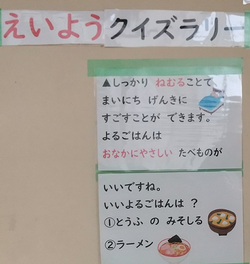 えいようクイズラリー
▲しっかり ねむることで
まいにち げんきに
すごすことが できます。
よるごはんは
おなかにやさしい たべものが
いいですね。
いいよるごはんは ？
①とうふ の みそしる
②ラーメン